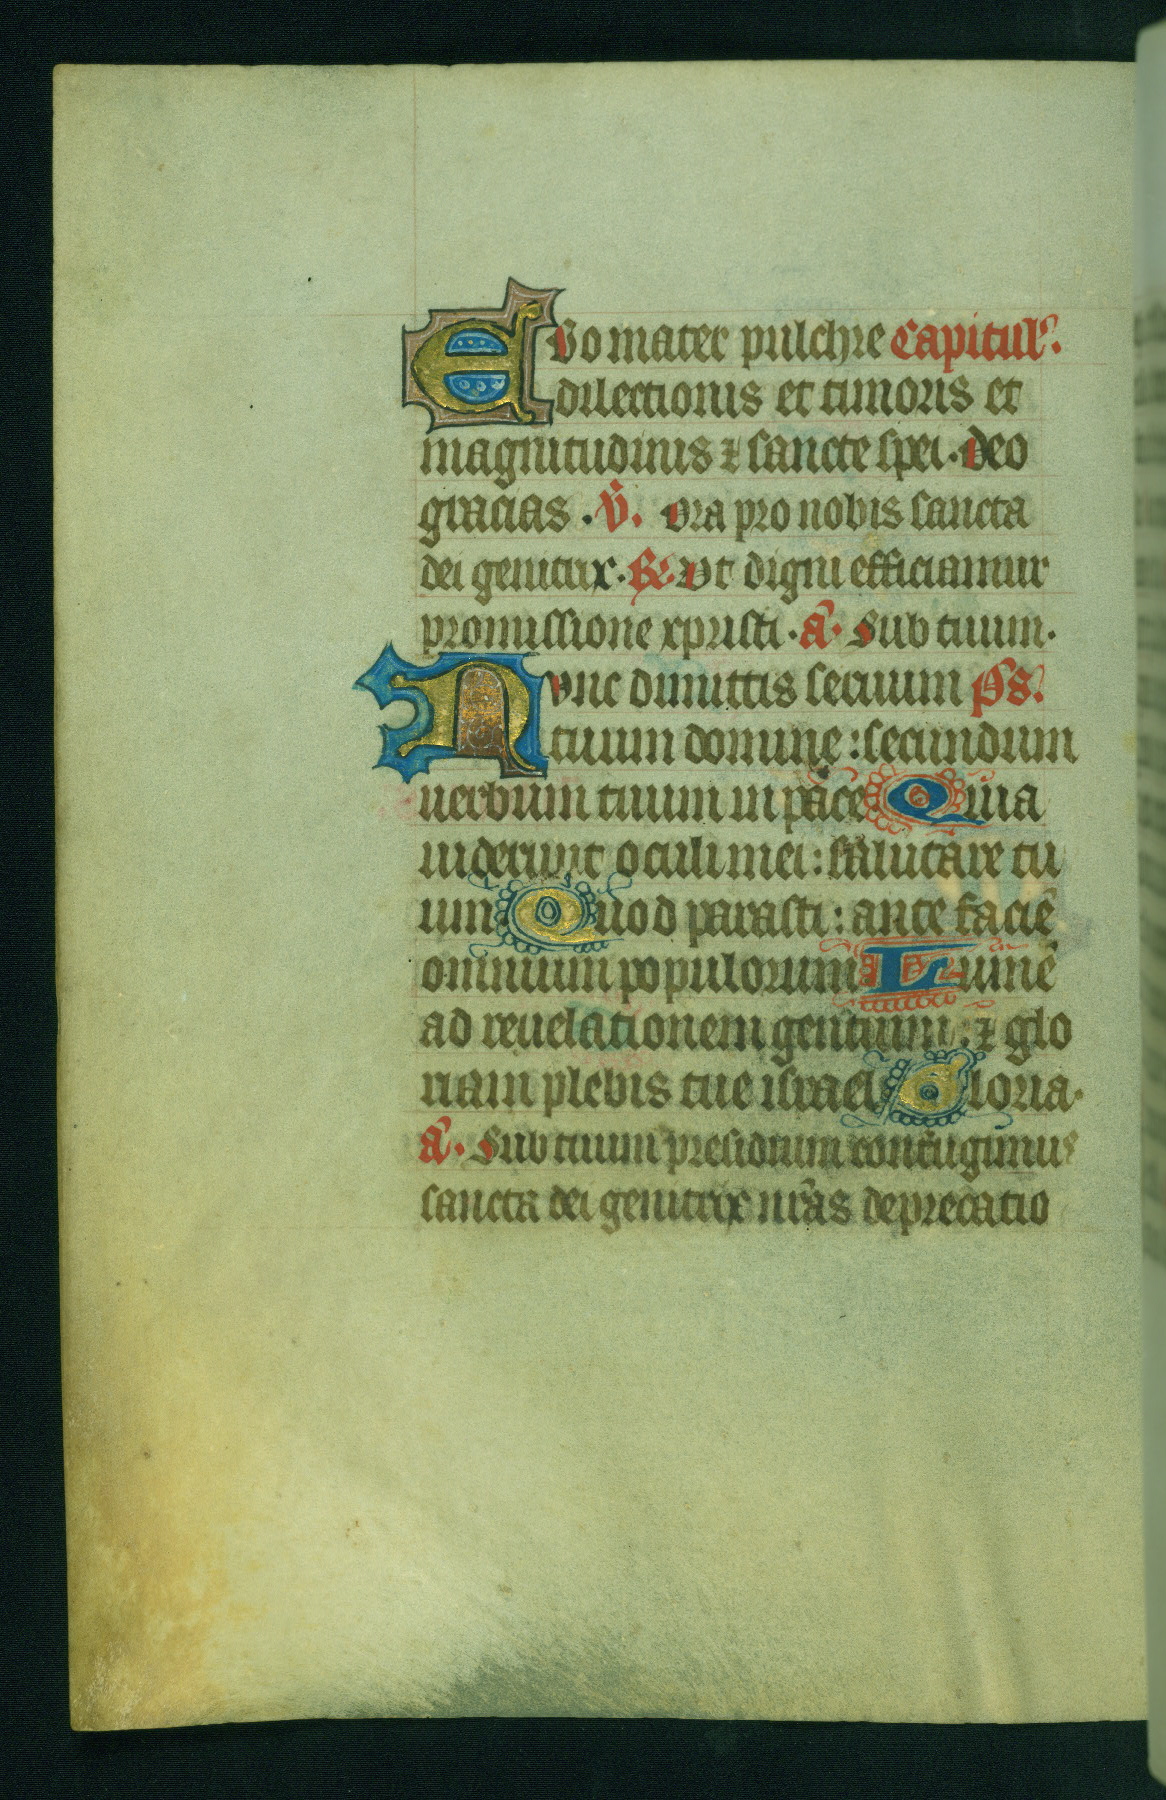 Ego mater pulchre Capitul'.
dilectionis et timoris et
magnitudinis ⁊ sancte spei. Deo
gracias. V̇. Ora pro nobis sancta
dei genitrix. R̷. Vt digni efficiamur
promissione xpristi. a᷃. Sub tuum.
Nunc dimittis seruum p̄s.
tuum domine: secundum
uerbum tuum in pace Quia
uiderunt oculi mei: salutare tu
um Quod parasti: ante faciē
omnium populorum Lumē
ad reuelationem gentium: ⁊ glo
riam plebis tue israel Gloria.
a᷃. Sub tuum presidium confugimus
sancta dei genitrix nr̄as deprecatio